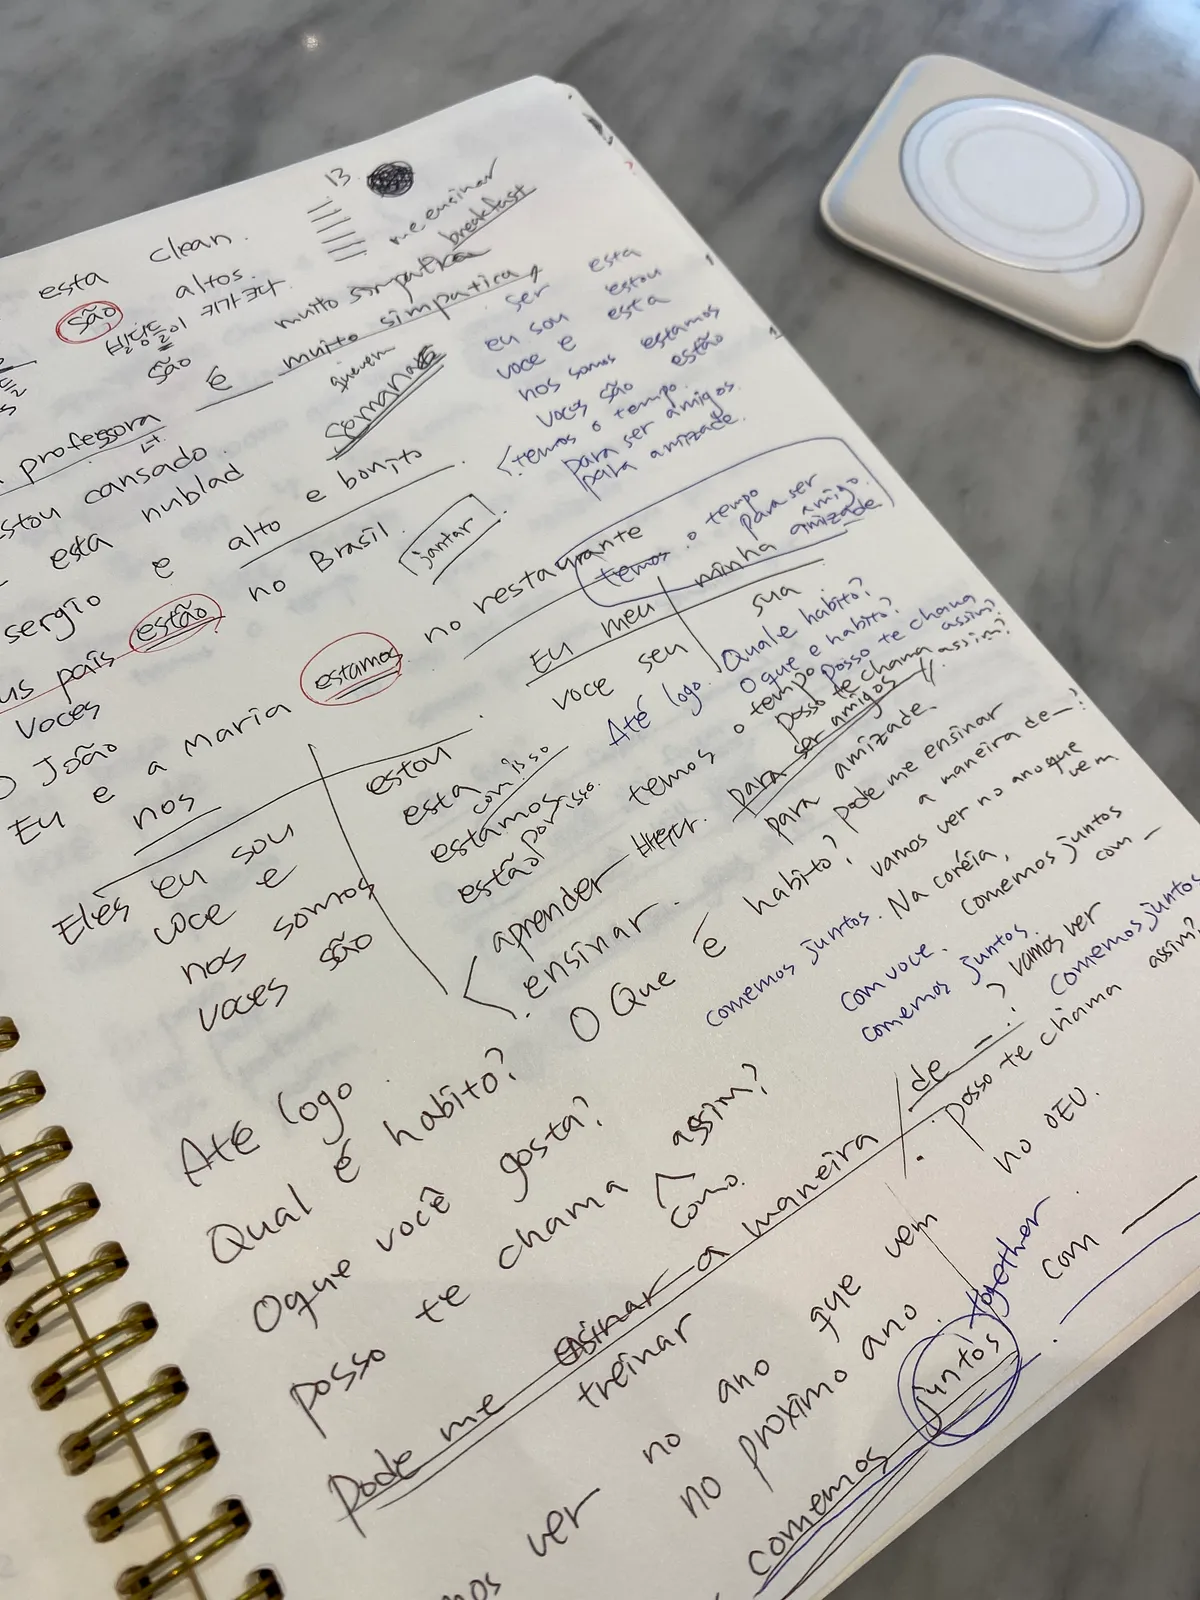 esta clean.
são altos.
빌딩들이 키가 크다
são
13
me ensinar
breakfast
é muito simpatica
muito simpatica
professora
quem
semana
estou cansado.
esta nublad
sergio e alto e bonito
us pais estão no Brasil.
voces
jantar
O João
Eu e a Maria estamos no restaurante
nos
ser esta
eu sou estou
voce e esta
nos somos estamos
voces são estão
temos o tempo.
para ser amigos.
para amizade.
temos o tempo
para ser
amigo.
amizade
Eu meu minha
voce seu sua
Eles eu sou estou
voce e esta
nos somos estamos
voces são estão
com isso
por isso.
Até logo. Qual e habito?
O que e habito?
posso te chama
assim?
temos o tempo
posso te chama assim?
para ser amigos
para amizade.
aprender
ensinar.
O Que é habito? pode me ensinar
a maneira de _?
vamos ver no ano que
vem
comemos juntos. Na coréia,
comemos juntos
com _
com voce.
comemos juntos.
? vamos ver
comemos juntos
Até logo.
Qual é habito?
O que você gosta?
posso te chama assim?
como.
Pode me ensinar a maneira de _
treinar
posso te chama
assim?
no OEU.
ver no ano que vem
no próximo ano.
comemos juntos together
com